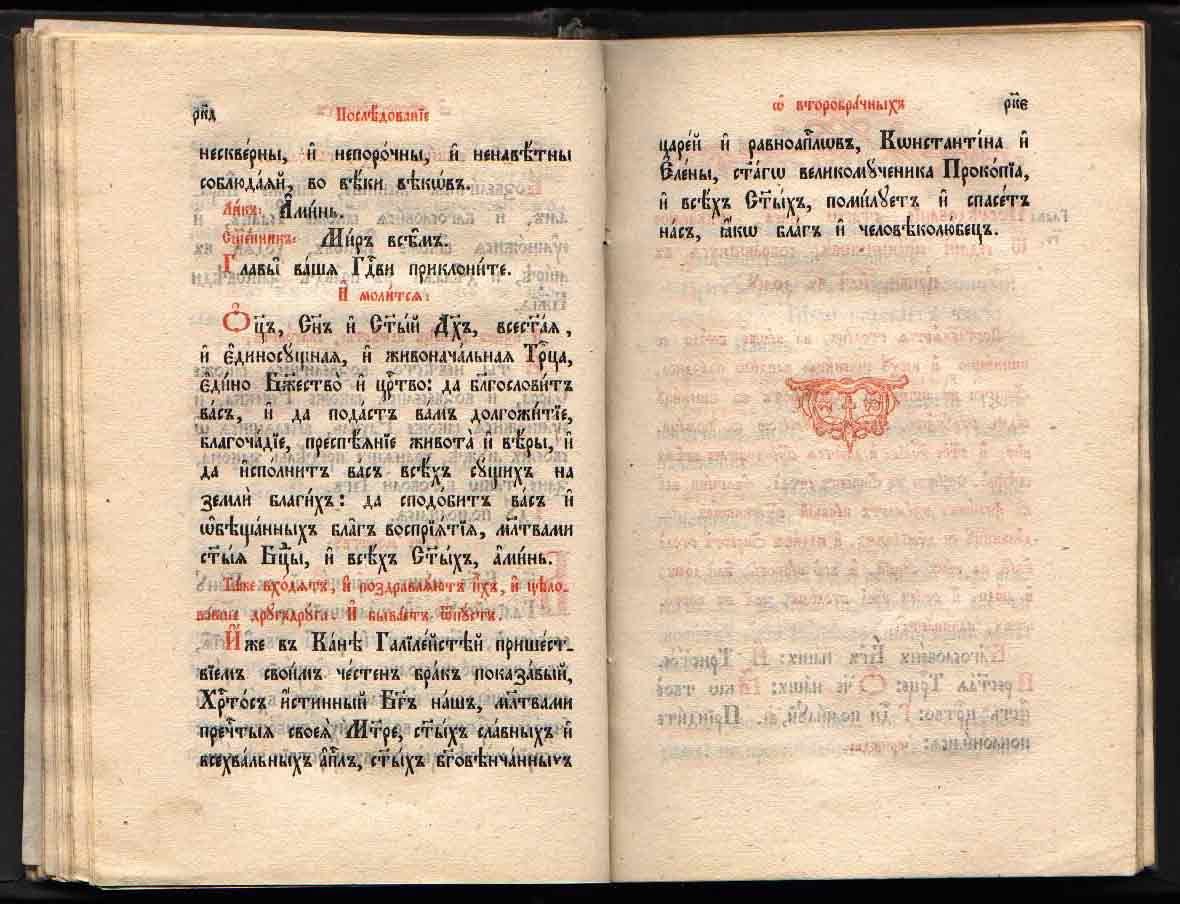 рк҃д
Послѣ́дованїе
нескве́рны, и҆ непоро́чны, и҆ ненавѣ́тны
соблюда́ѧй, во вѣ́ки вѣкѡ́въ.
Ли́къ: А҆ми́нь.
Сщ҃е́нникъ: Ми́ръ всѣ̑мъ.
Главы̑ ва́шѧ Гд҇ви приклони́те.
И҆ моли́тсѧ:
Ѻ҆ц҃ъ, Сн҃ъ и҆ Ст҃ы́й Дх҃ъ, всест҃а́ѧ,
и҆ є҆диносу́щнаѧ, и҆ живонача́льнаѧ Трⷪ҇ца,
є҆ди́но Бж҃ество̀ и҆ црⷭ҇тво: да бл҃гослови́тъ
ва́съ, и҆ да пода́стъ ва́мъ долгожи́тїе,
благоча́дїе, преспѣ́ѧнїе живота̀ и҆ вѣ́ры, и҆
да и҆спо́лнитъ ва́съ всѣ́хъ су́щихъ на
землѝ благи́хъ: да сподо́битъ ва́съ и҆
ѡ҆бѣща́нныхъ бла̑гъ воспрїѧ́тїѧ, мл҃твами
ст҃ы́ѧ Бцⷣы, и҆ всѣ́хъ Ст҃ы́хъ, а҆ми́нь.
Та́же вхо́дѧтъ, и҆ поздравлѧ́ютъ и҆̀хъ, и҆ цѣло-
ва́вше дру́гъ дру́га. И҆ быва́етъ, ѿпу́стъ.
И҆́же въ Ка́нѣ Галїле́йстѣй прише́ст-
вїемъ свои́мъ че́стенъ бра́къ показа́вый,
Хрⷭ҇то́съ и҆́стинный Бг҃ъ на́шъ, мл҃твами
пречⷭ҇тыѧ своеѧ̀ Мт҃ре, ст҃ы́хъ сла́вныхъ и҆
всехва́льныхъ а҆пⷭ҇лъ, ст҃ы́хъ бг҃овѣнча́нныхъ
ѡ҆ второбра́чныхъ
рк҃є
царе́й и҆ равноапⷭ҇лѡвъ, Кѡнстанті́на и҆
Є҆ле́ны, ст҃а́гѡ великому́ченика Проко́пїа,
и҆ всѣ́хъ Ст҃ы́хъ, поми́луетъ и҆ спасе́тъ
на́съ, ꙗ҆́кѡ бла́гъ и҆ человѣколю́бецъ.